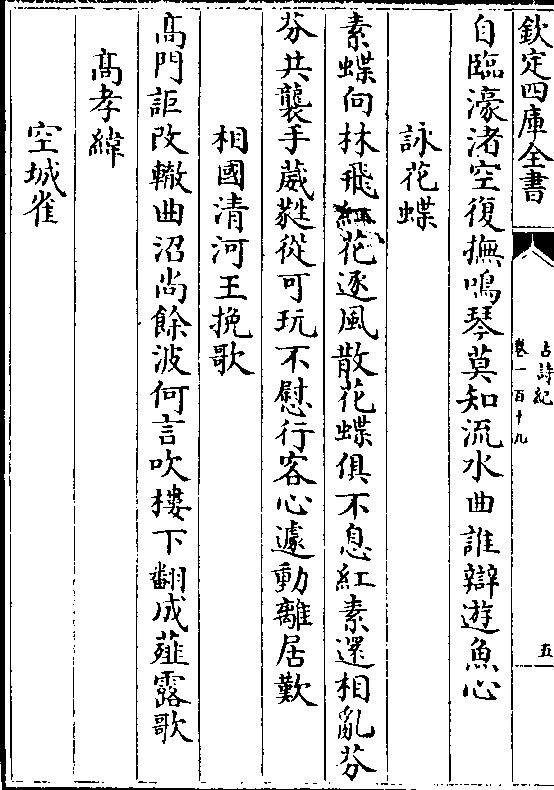 欽定四庫全書
古詩紀
卷一百十九
五
自臨濠渚空復撫鳴琴莫知流水曲誰辯遊魚心
詠花蝶
素蝶向林飛紅花逐風散花蝶俱不息紅素還相亂芬
芬共襲手葳蕤從可玩不慰行客心遽動離居歎
相國清河王挽歌
髙門詎改轍曲沼尚餘波何言吹樓下翻成薤露歌
髙孝緯
空城雀